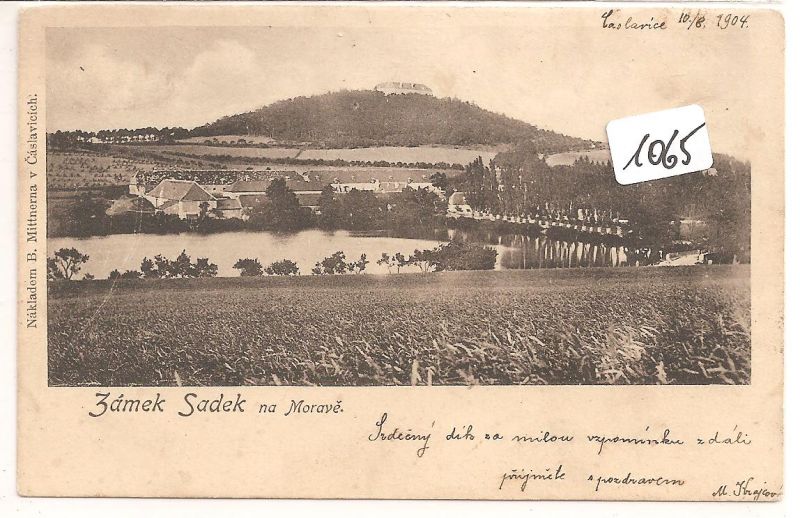 Čáslavice 10/8. 1904.
1065
Nákladem B. Mittnerna v Čáslavicích.
Zámek Sadek na Moravě.
Srdečný dík za milou vzpomínku z dáli
přijměte s pozdravem
M. Krajcová